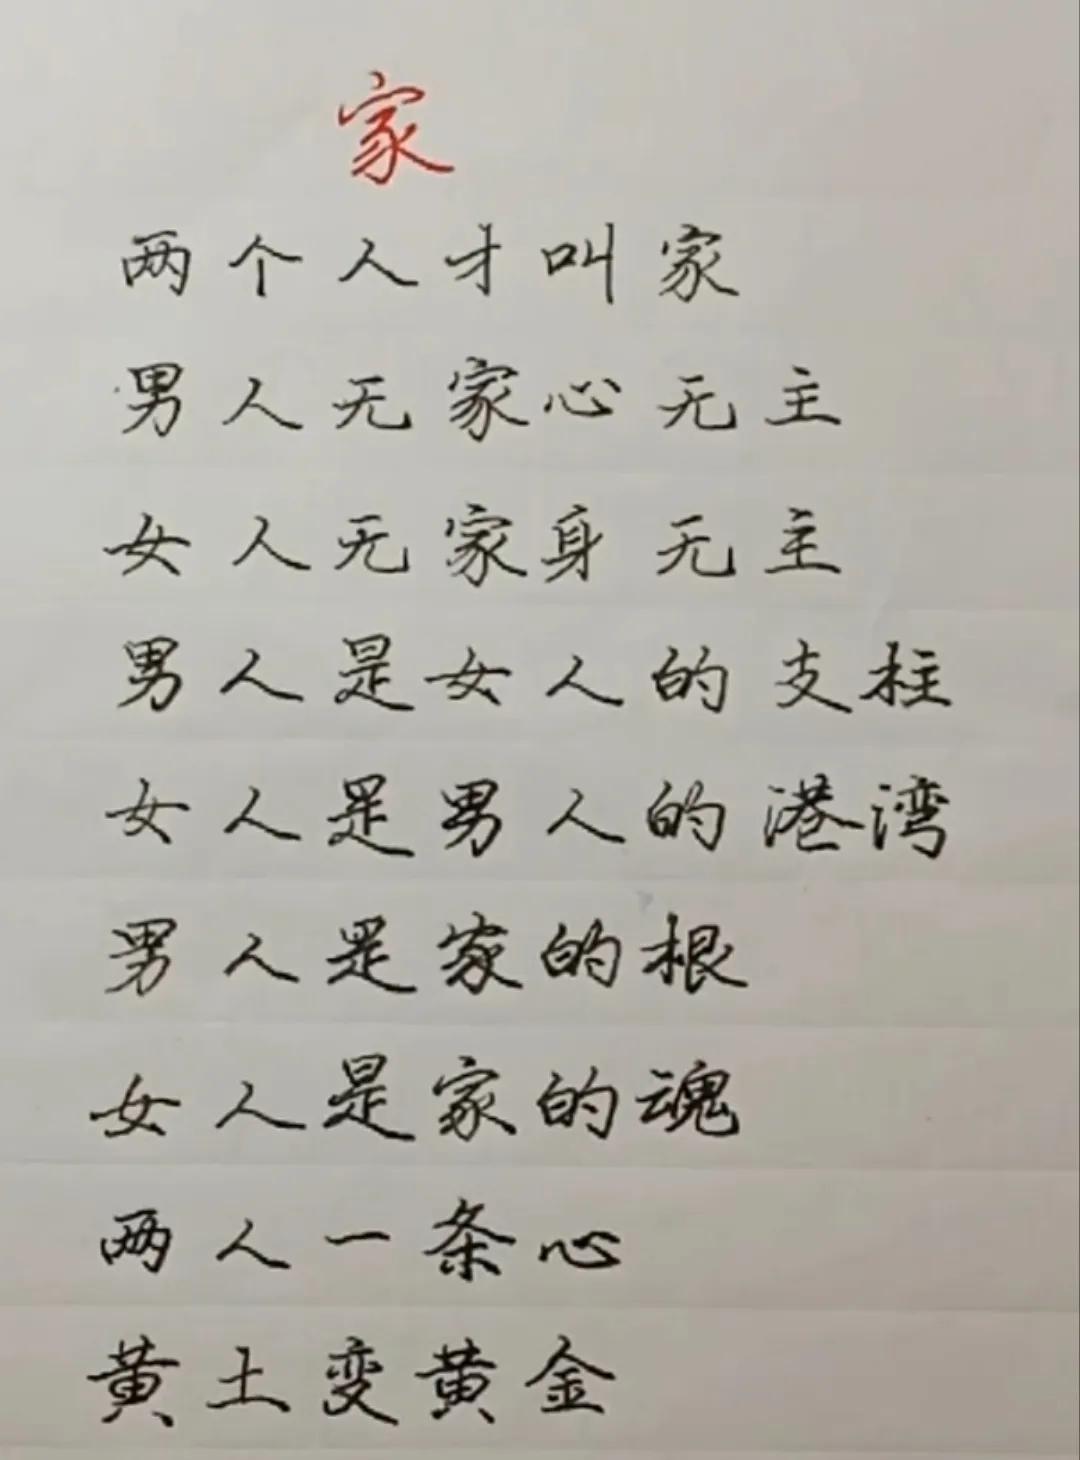 家
两个人才叫家
男人无家心无主
女人无家身无主
男人是女人的支柱
女人是男人的港湾
男人是家的根
女人是家的魂
两人一条心
黄土变黄金